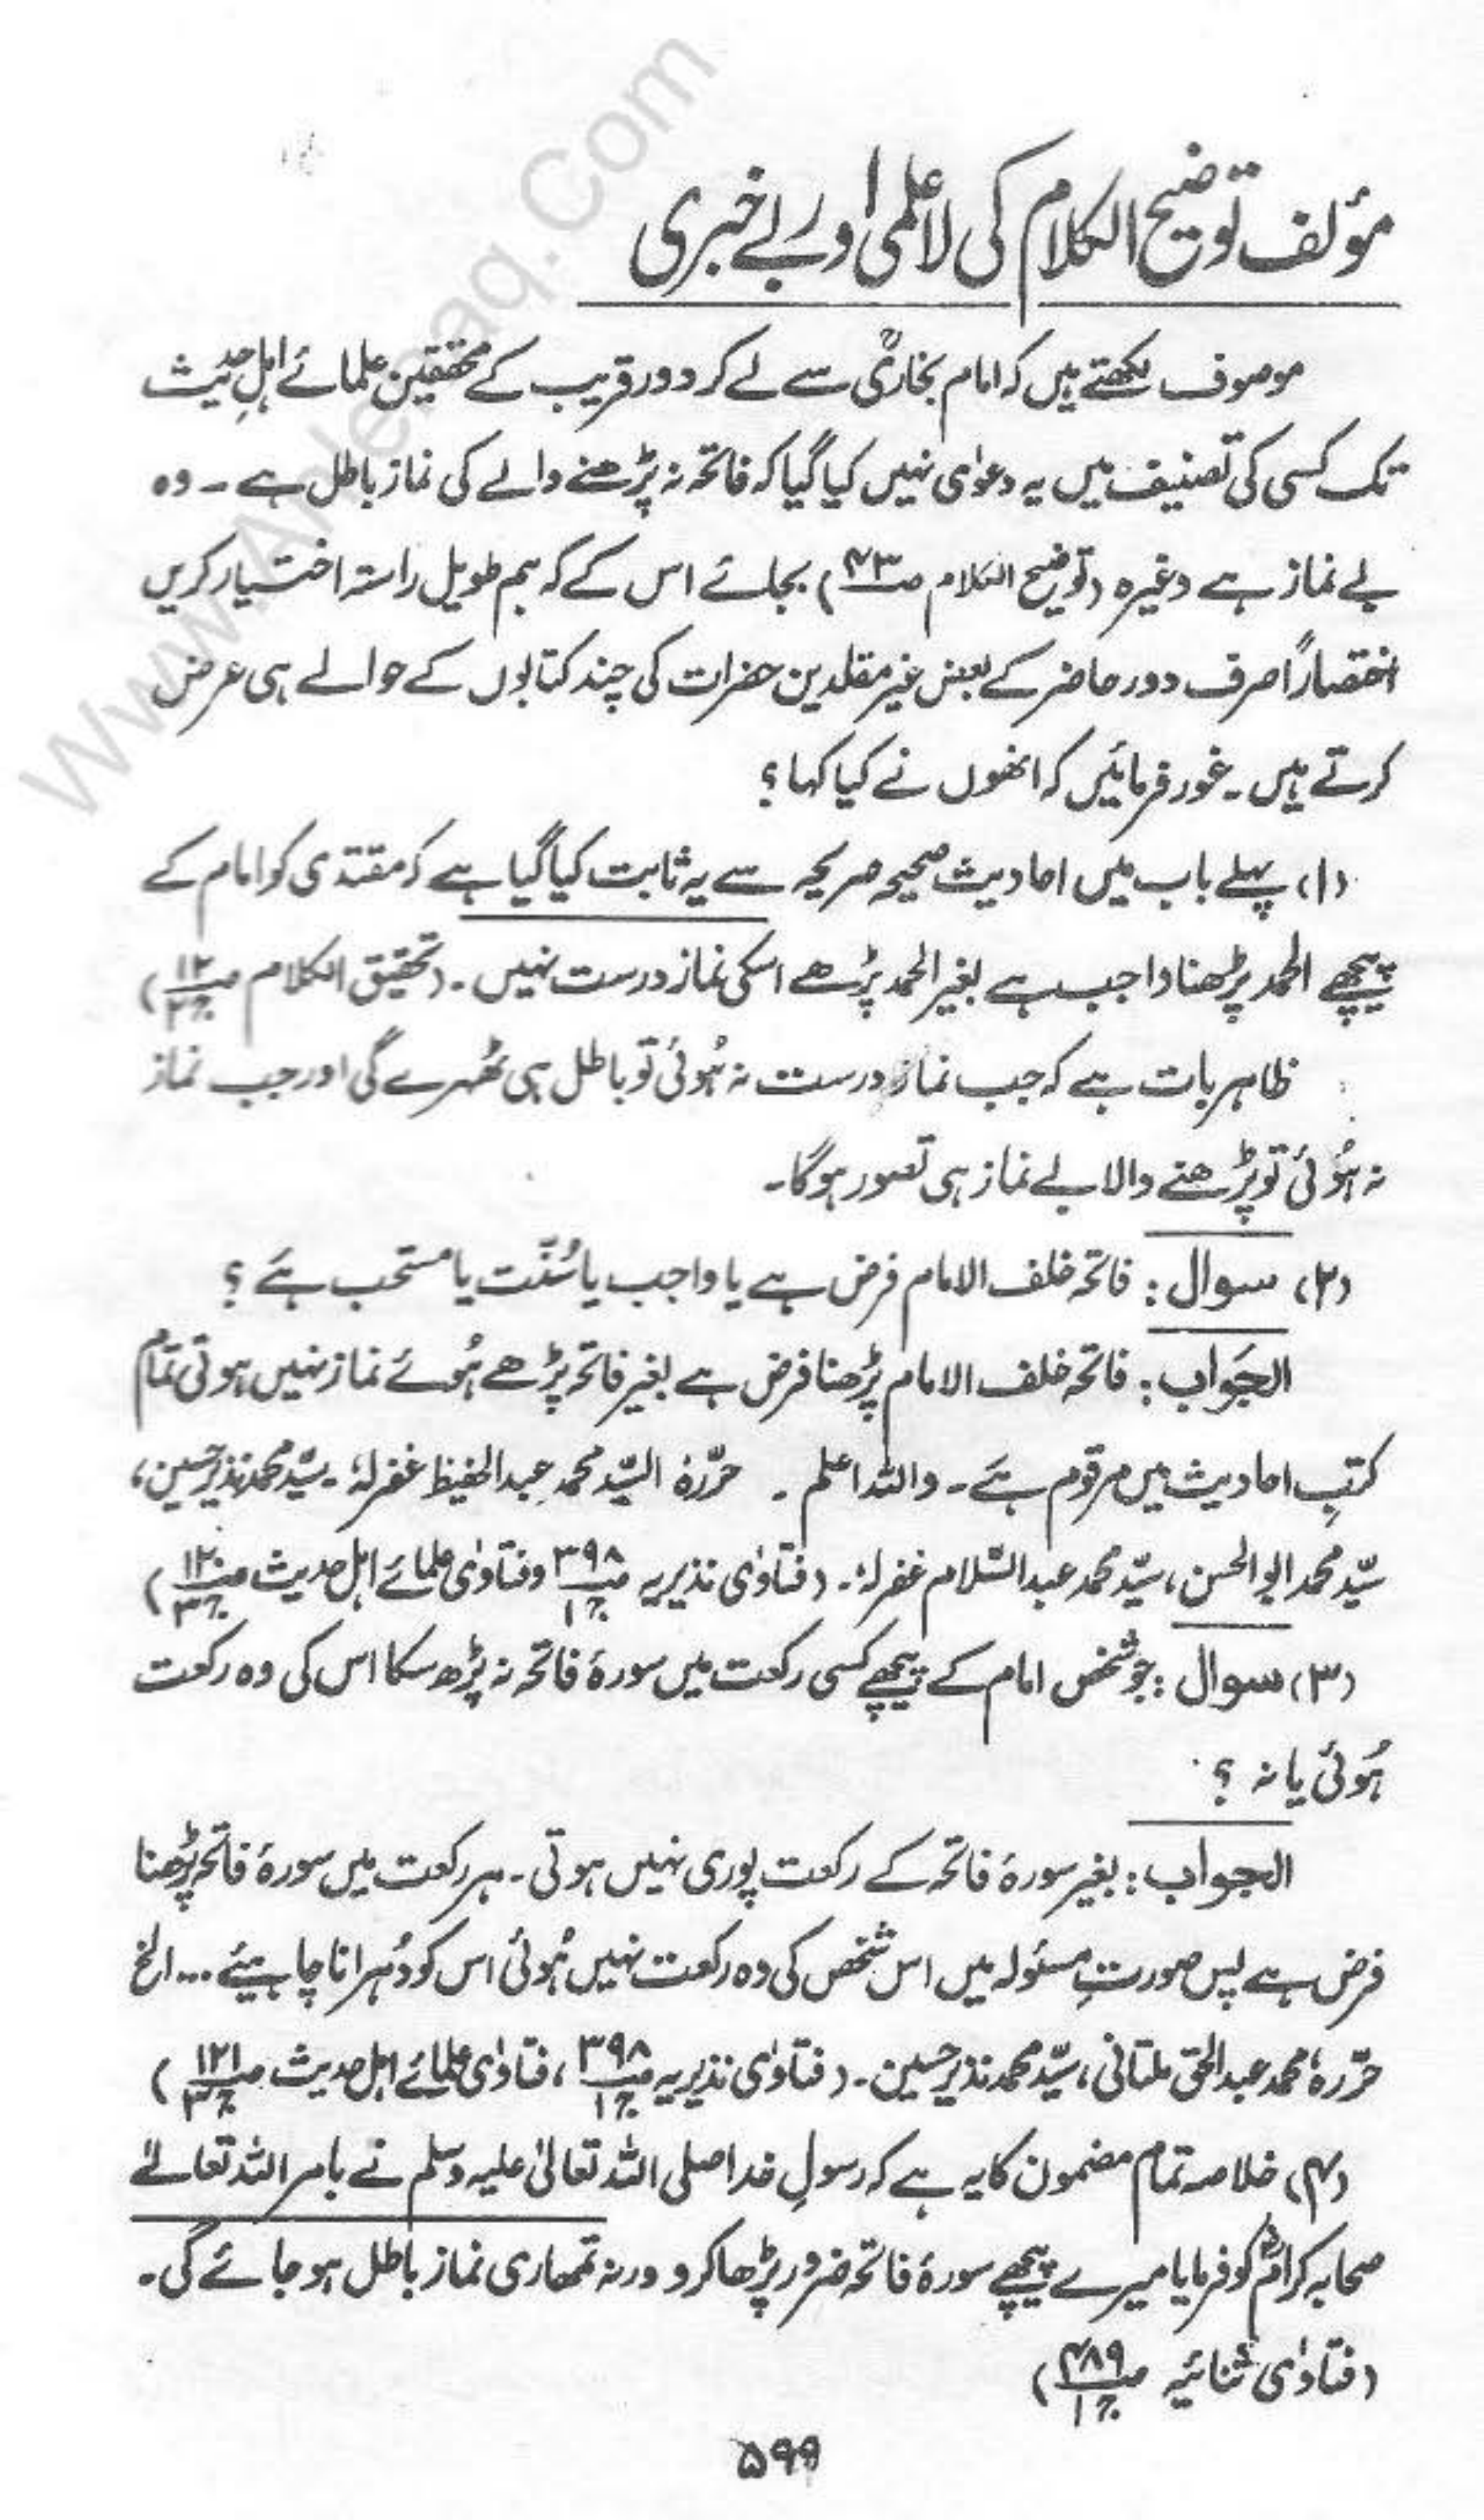 www.Ahlehaq.Com
مؤلف توضیح الکلام کی لاعلمی اور بے خبری
موصوف لکھتے ہیں کہ امام بخاریؒ سے لے کر دور قریب کے محققین علمائے اہلِ حدیث
تک کسی کی تصنیف میں یہ دعوٰی نہیں کیا گیا کہ فاتحہ نہ پڑھنے والے کی نماز باطل ہے ۔ وہ
بے نماز ہے وغیرہ (توضیح الکلام صـ۴۳) بجائے اس کے کہ ہم طویل راستہ اختیار کریں
اختصاراً صرف دور حاضر کے بعض غیر مقلدین حضرات کی چند کتابوں کے حوالے ہی عرض
کرتے ہیں ۔ غور فرمائیں کہ انھوں نے کیا کہا ؟
(۱) پہلے باب میں احادیث صحیحہ صریحہ سے یہ ثابت کیا گیا ہے کہ مقتدی کو امام کے
پیچھے الحمد پڑھنا واجب ہے بغیر الحمد پڑھے اسکی نماز درست نہیں ۔ (تحقیق الکلام صـ۱۲ ج۲)
ظاہر بات ہے کہ جب نماز درست نہ ہُوئی تو باطل ہی ٹھہرے گی اور جب نماز
نہ ہُوئی تو پڑھنے والا بے نماز ہی تصور ہوگا۔
(۲) سوال : فاتحہ خلف الامام فرض ہے یا واجب یا سُنّت یا مستحب ہَے ؟
الجَواب : فاتحہ خلف الامام پڑھنا فرض ہے بغیر فاتحہ پڑھے ہُوئے نماز نہیں ہوتی تمام
کتبِ احادیث میں مرقوم ہَے ۔ واللہ اعلم ۔ حرّرہٗ السیّد محمد عبد الحفیظ غفرلہٗ ۔ سیّد محمد نذیر حسین،
سیّد محمد ابو الحسن، سیّد محمد عبد السّلام غفرلہٗ ۔ (فتاوٰی نذیریہ صـ۳۹۸ ج۱ وفتاوٰی علمائے اہل حدیث صـ۱۲۰ ج۳)
(۳) سوال : جو شخص امام کے پیچھے کسی رکعت میں سورۂ فاتحہ نہ پڑھ سکا اس کی وہ رکعت
ہُوئی یا نہ ؟
الجواب : بغیر سورۂ فاتحہ کے رکعت پوری نہیں ہوتی ۔ ہر رکعت میں سورۂ فاتحہ پڑھنا
فرض ہے پس صورتِ مسئولہ میں اس شخص کی وہ رکعت نہیں ہُوئی اس کو دُہرانا چاہیئے ... الخ
حرّرہٗ محمد عبد الحق ملتانی، سیّد محمد نذیر حسین ۔ (فتاوٰی نذیریہ صـ۳۹۸ ج۱، فتاوٰی علمائے اہل حدیث صـ۱۲۱ ج۳)
(۴) خلاصہ تمام مضمون کا یہ ہے کہ رسولِ خدا صلی اللہ تعالیٰ علیہ وسلم نے بامر اللہ تعالےٰ
صحابہ کرامؓ کو فرمایا میرے پیچھے سورۂ فاتحہ ضرور پڑھا کرو ورنہ تمھاری نماز باطل ہو جائے گی ۔
(فتاوٰی ثنائیہ صـ۴۸۹ ج۱)
۵۹۹